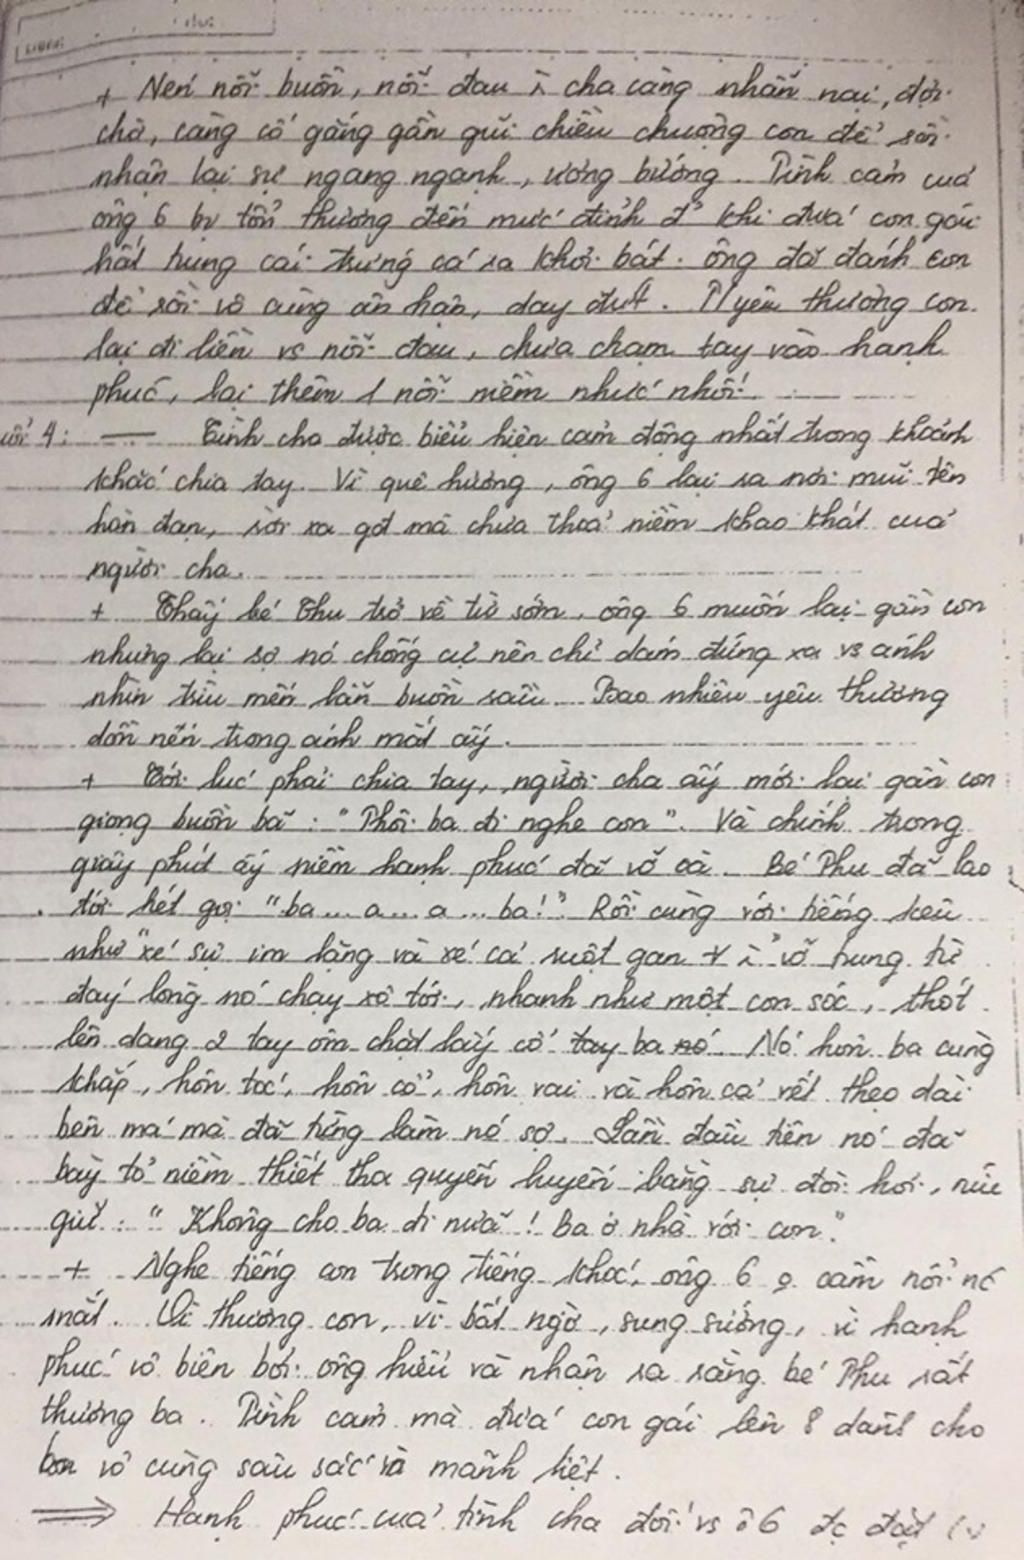 + Nén nỗi buồn, nỗi đau, cha càng nhẫn nại, đợi
chờ, càng cố gắng gần gũi chiều chuộng con để rồi
nhận lại sự ngang ngạnh, ương bướng. Tình cảm của
ông 6 bị tổn thương đến mức đỉnh khi đứa con gái
hất tung cái trứng cá ra khỏi bát. ông đã đánh con
để rồi vô cùng ân hận, day dứt. Tyêu thương con
lại đi liền vs nỗi đau, chưa chạm tay vào hạnh
phúc, lại thêm 1 nỗi niềm nhức nhối!
4: — Tình cha được biểu hiện cảm động nhất trong khoảnh
khắc chia tay. Vì quê hương, ông 6 lại ra nơi mũi tên
hòn đạn, rời xa gót mà chưa thoả niềm khao khát của
người cha.
+ Thấy bé Thu trở về từ sớm, ông 6 muốn lại gần con
nhưng lại sợ nó chống cự nên chỉ dám đứng xa vs ánh
nhìn trìu mến lẫn buồn rầu. Bao nhiêu yêu thương
dồn nén trong ánh mắt ấy.
+ Tới lúc phải chia tay, người cha ấy mới lại gần con
giọng buồn bã: "Thôi ba đi nghe con". Và chính trong
giây phút ấy niềm hạnh phúc đã vỡ oà. Bé Thu đã lao
tới hét gọi "ba... a... a... ba!" Rồi cùng với tiếng kêu
như "xé sự im lặng và xé cả ruột gan" vỡ tung từ
đáy lòng nó chạy xô tới, nhanh như một con sóc, thót
lên dang 2 tay ôm chặt lấy cổ tay ba nó. Nó hôn ba cùng
khắp, hôn tóc, hôn cổ, hôn vai và hôn cả vết thẹo dài
bên má mà đã từng làm nó sợ. Lần đầu tiên nó đã
bày tỏ niềm thiết tha quyến luyến bằng sự đòi hỏi, níu
giữ: "Không cho ba đi nữa! Ba ở nhà với con."
+ Nghe tiếng con trong tiếng khóc, ông 6 cầm nổi nc
mắt. Vì thương con, vì bất ngờ, sung sướng, vì hạnh
phúc vô biên bởi ông hiểu và nhận ra rằng bé Thu rất
thương ba. Tình cảm mà đứa con gái lên 8 dành cho
vô cùng sâu sắc và mãnh liệt.
⟹ Hạnh phúc của tình cha đối vs ô 6 đc đặt